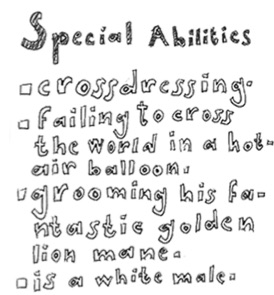 Special Abilities
crossdressing.
failing to cross
the world in a hot-
air balloon.
grooming his fa-
ntastic golden
lion mane.
is a white male.